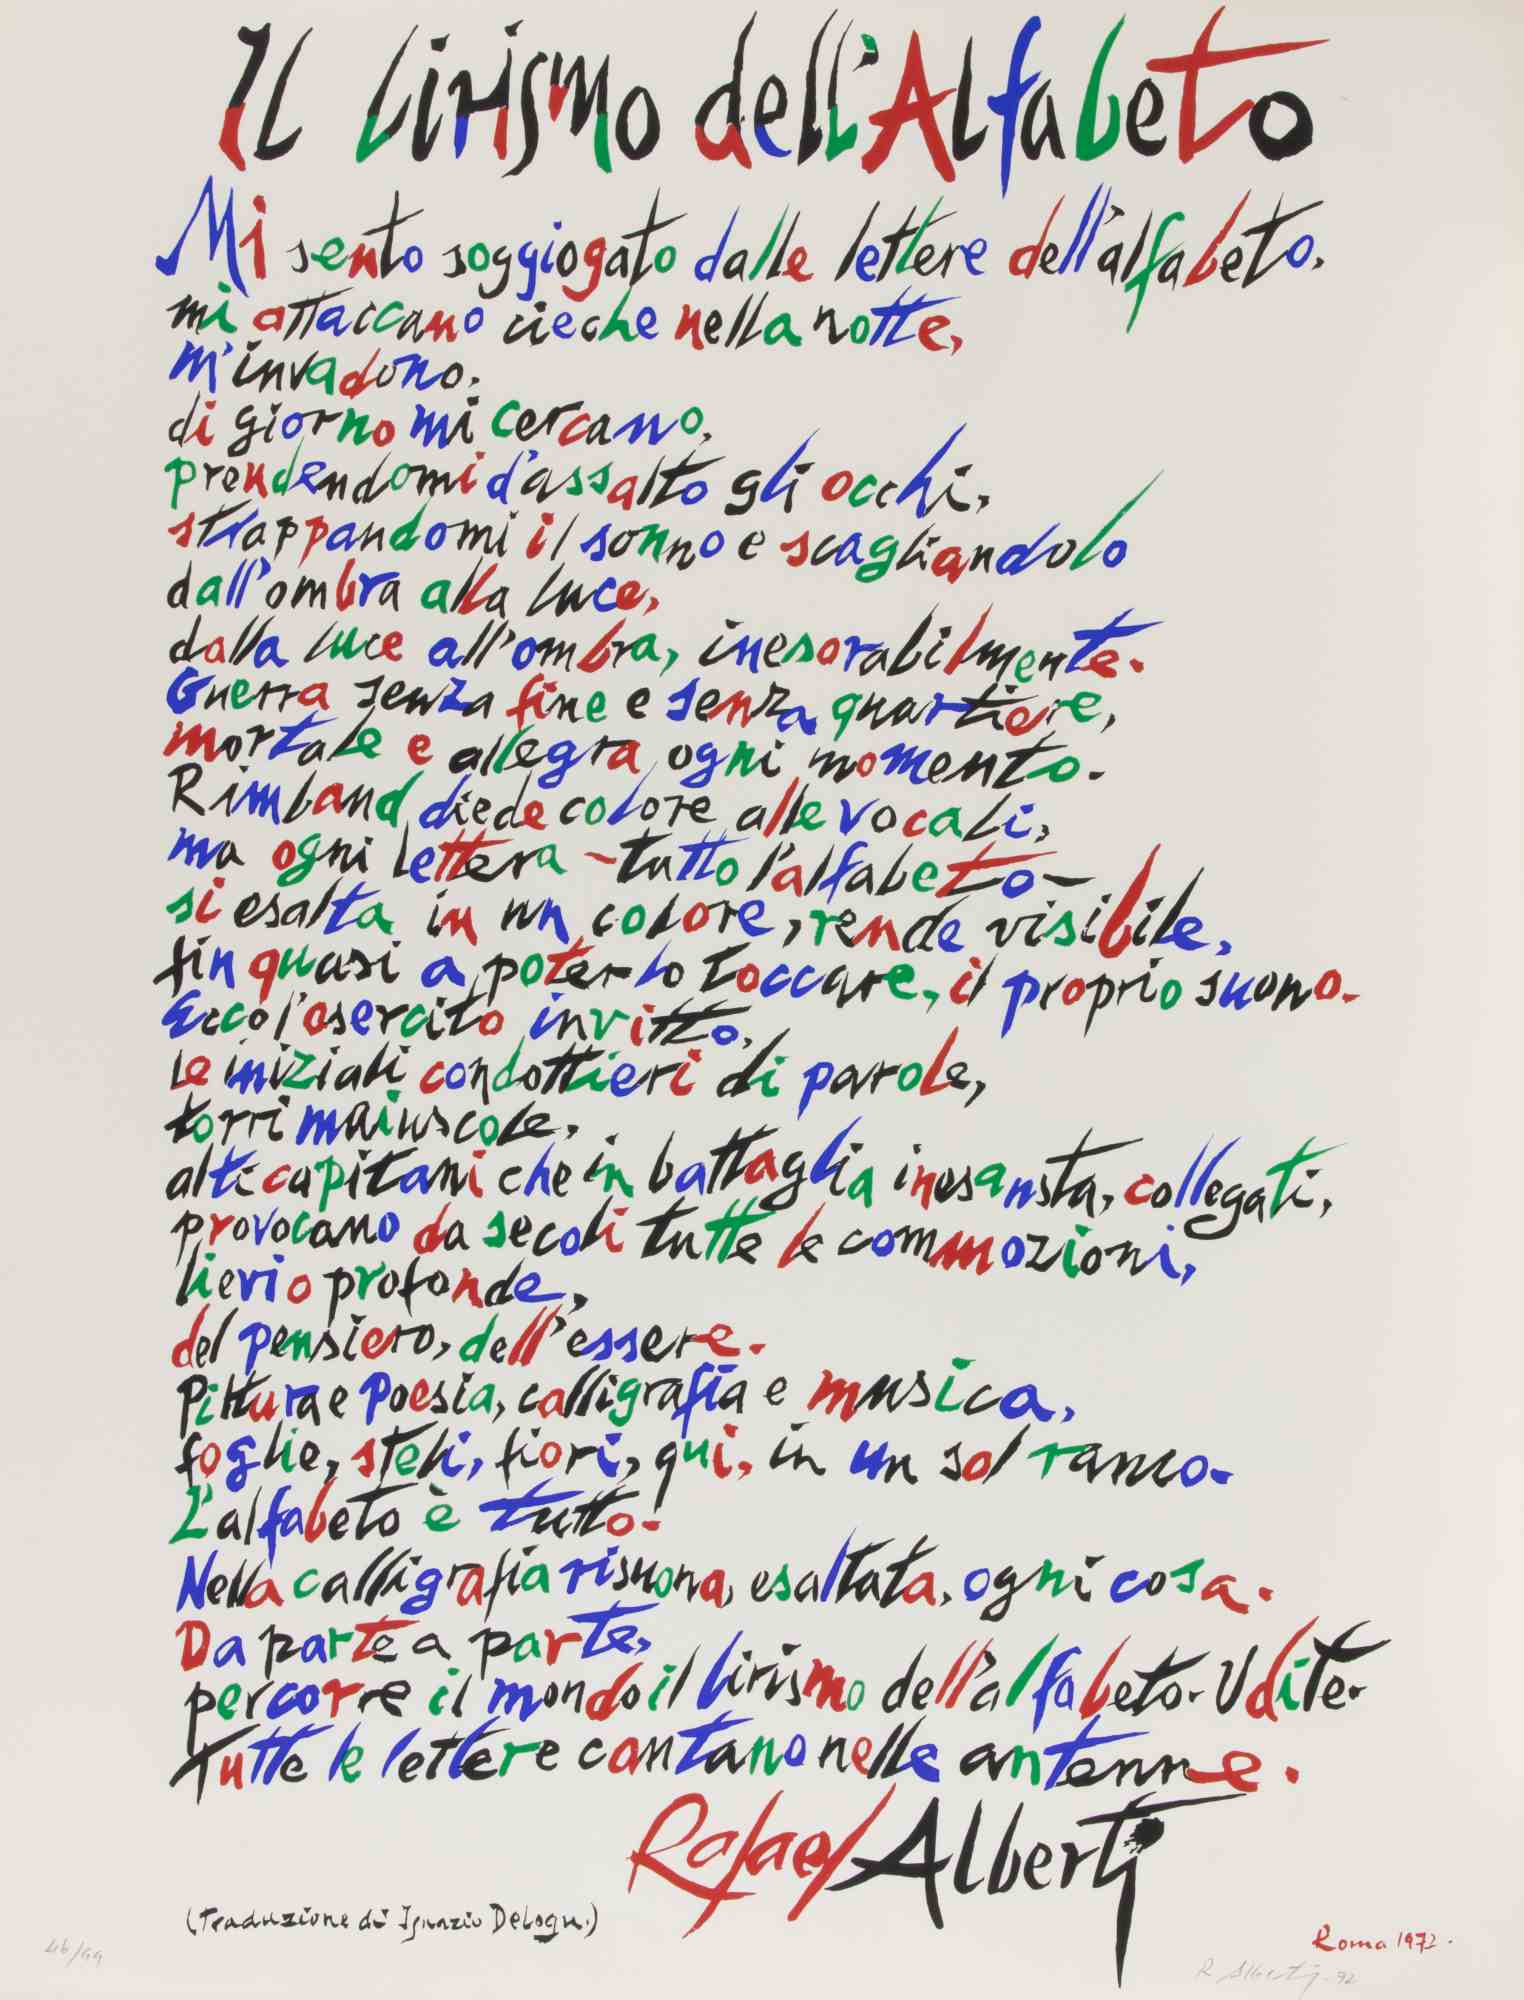 Il lirismo dell'Alfabeto
Mi sento soggiogato dalle lettere dell'alfabeto.
mi attaccano cieche nella notte,
m'invadono.
di giorno mi cercano.
prendendomi d'assalto gli occhi,
strappandomi il sonno e scagliandolo
dall'ombra alla luce,
dalla luce all'ombra, inesorabilmente.
Guerra senza fine e senza quartiere,
mortale e allegra ogni momento.
Rimbaud diede colore alle vocali,
ma ogni lettera - tutto l'alfabeto -
si esalta in un colore, rende visibile,
fin quasi a poterlo toccare, il proprio suono.
Ecco l'esercito invitto,
le iniziali condottieri di parole,
torri maiuscole,
alti capitani che in battaglia inesausta, collegati,
provocano da secoli tutte le commozioni,
lievi o profonde,
del pensiero, dell'essere.
Pittura e Poesia, calligrafia e musica,
foglie, steli, fiori, qui, in un sol ramo.
L'alfabeto è tutto.
Nella calligrafia risuona, esaltata, ogni cosa.
Da parte a parte,
percorre il mondo il lirismo dell'alfabeto. Udite.
Tutte le lettere cantano nelle antenne.
Rafael Alberti
(Traduzione di Ignazio Delogu.)
Roma 1972.
46/99
R Alberti - 92